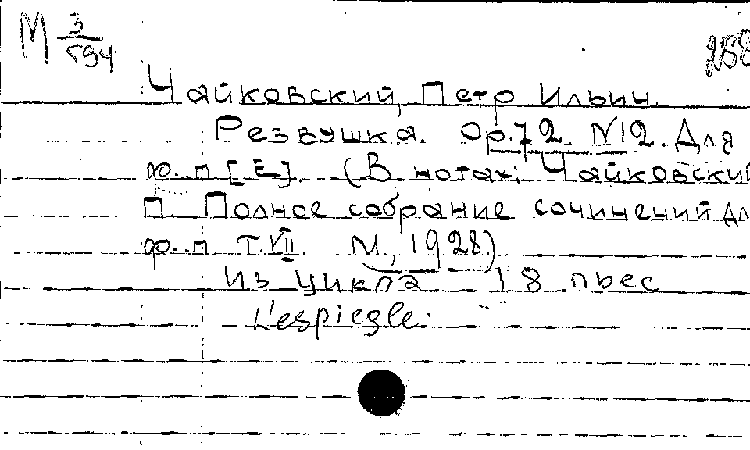 М 3/594 258
Чайковский, Петр Ильич.
Резвушка. Op.72. N12. Для
ф.-п [E]. (В нотах: Чайковский
П. Полное собрание сочинений для
ф.-п. Т.VII. М., 1928.)
Из цикла 18 пьес
L'espiegle.